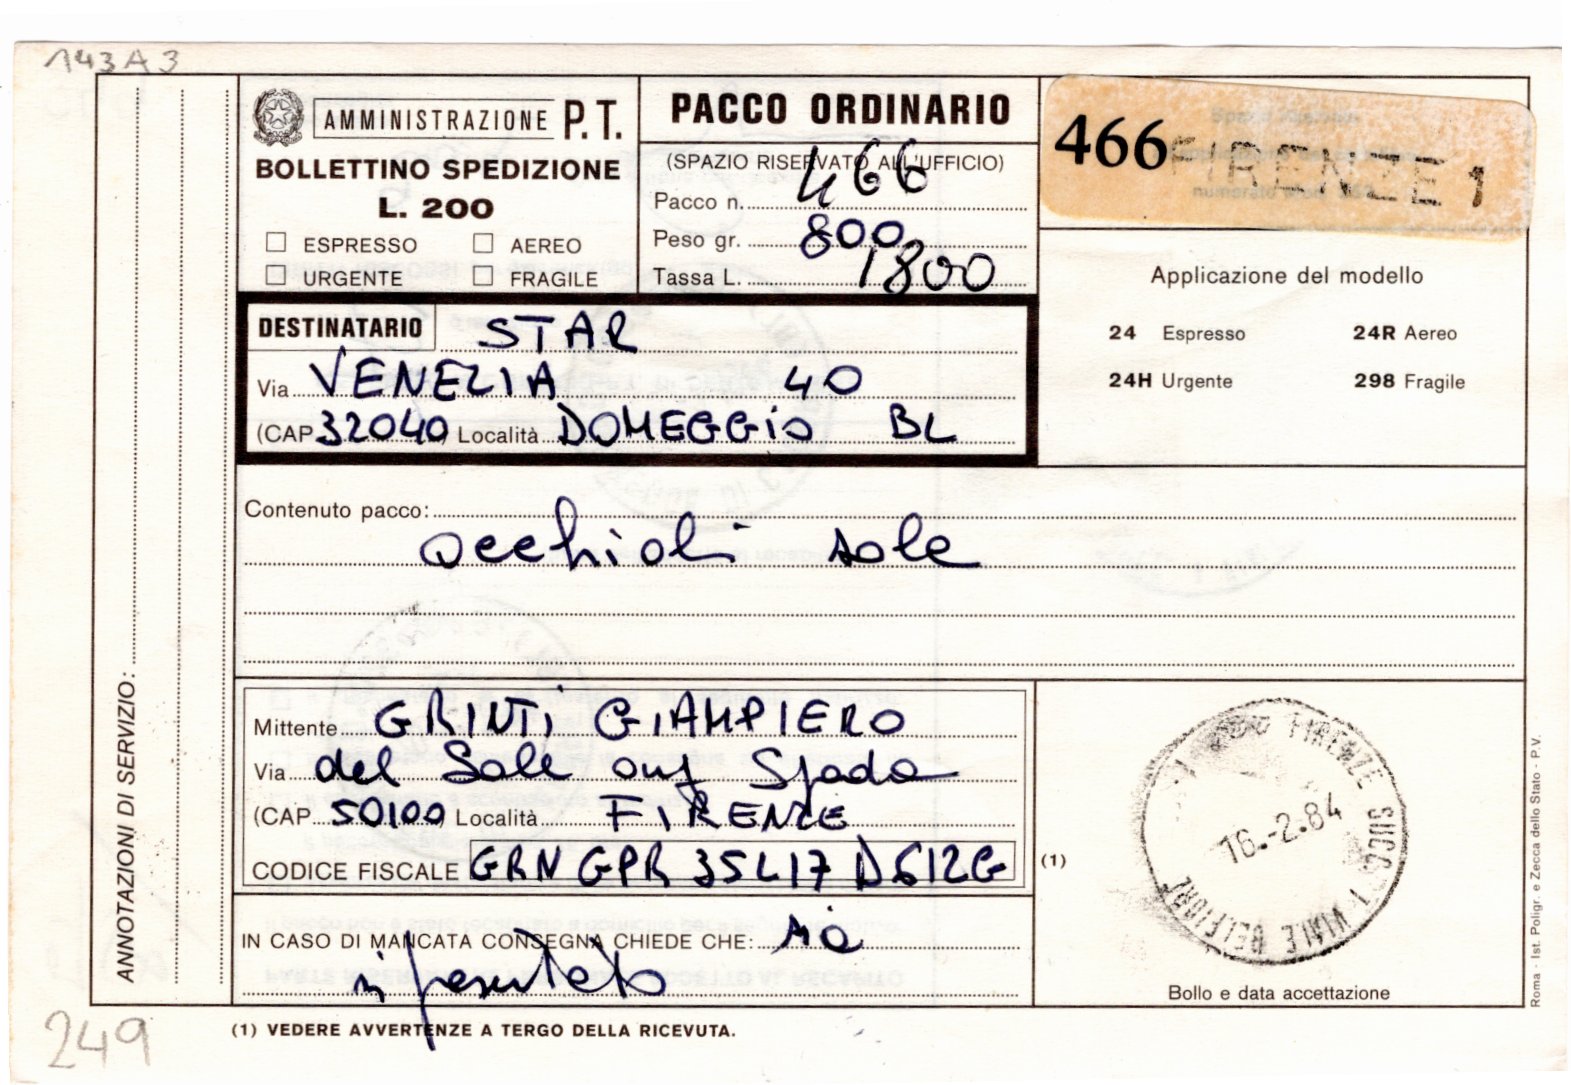 143A3
AMMINISTRAZIONE P.T.
BOLLETTINO SPEDIZIONE
L. 200
ESPRESSO AEREO
URGENTE FRAGILE
PACCO ORDINARIO
(SPAZIO RISERVATO ALL'UFFICIO)
Pacco n. 466
Peso gr. 800
Tassa L. 1800
466 FIRENZE 1
Applicazione del modello
24 Espresso 24R Aereo
24H Urgente 298 Fragile
DESTINATARIO STAR
Via VENEZIA 40
(CAP 32040) Località DOMEGGiO BL
Contenuto pacco:
occhiali sole
Mittente GRINTi GIAMPIERO
Via del Sole ang Spada
(CAP 50100) Località FIRENZE
CODICE FISCALE GRN GPR 35L17 D612G
(1)
IN CASO DI MANCATA CONSEGNA CHIEDE CHE: sia
FIRENZE SUCC. 1 VIALE BELFIORE
16.-2.84
Bollo e data accettazione
ANNOTAZIONI DI SERVIZIO:
Roma - Ist. Poligr. e Zecca dello Stato - P.V.
(1) VEDERE AVVERTENZE A TERGO DELLA RICEVUTA.
249